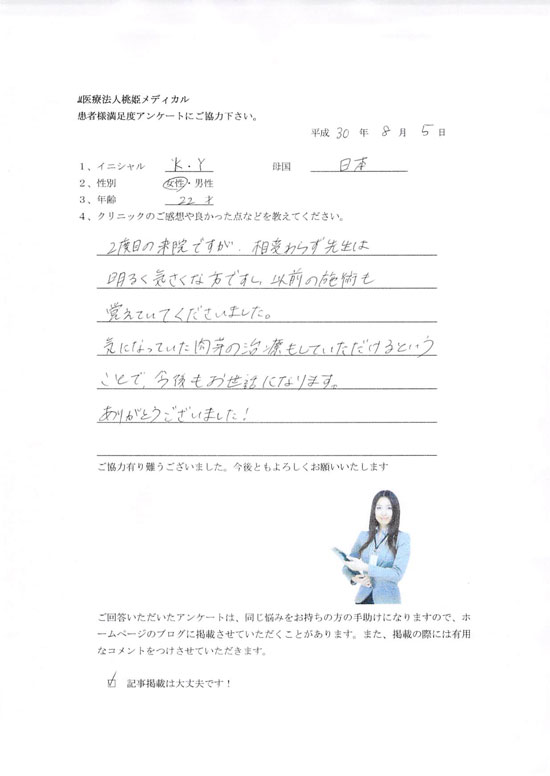 医療法人桃姫メディカル
患者様満足度アンケートにご協力下さい。
平成 30 年 8 月 5 日
1、イニシャル K・Y 母国 日本
2、性別 女性・男性
3、年齢 22才
4、クリニックのご感想や良かった点などを教えてください。
2度目の来院ですが、相変わらず先生は
明るく気さくな方ですし、以前の施術も
覚えていてくださいました。
気になっていた肉芽の治療もしていただけるという
ことで、今後もお世話になります。
ありがとうございました!
ご協力有り難うございました。今後ともよろしくお願いいたします
ご回答いただいたアンケートは、同じ悩みをお持ちの方の手助けになりますので、ホ
ームページのブログに掲載させていただくことがあります。また、掲載の際には有用
なコメントをつけさせていただきます。
☑ 記事掲載は大丈夫です!